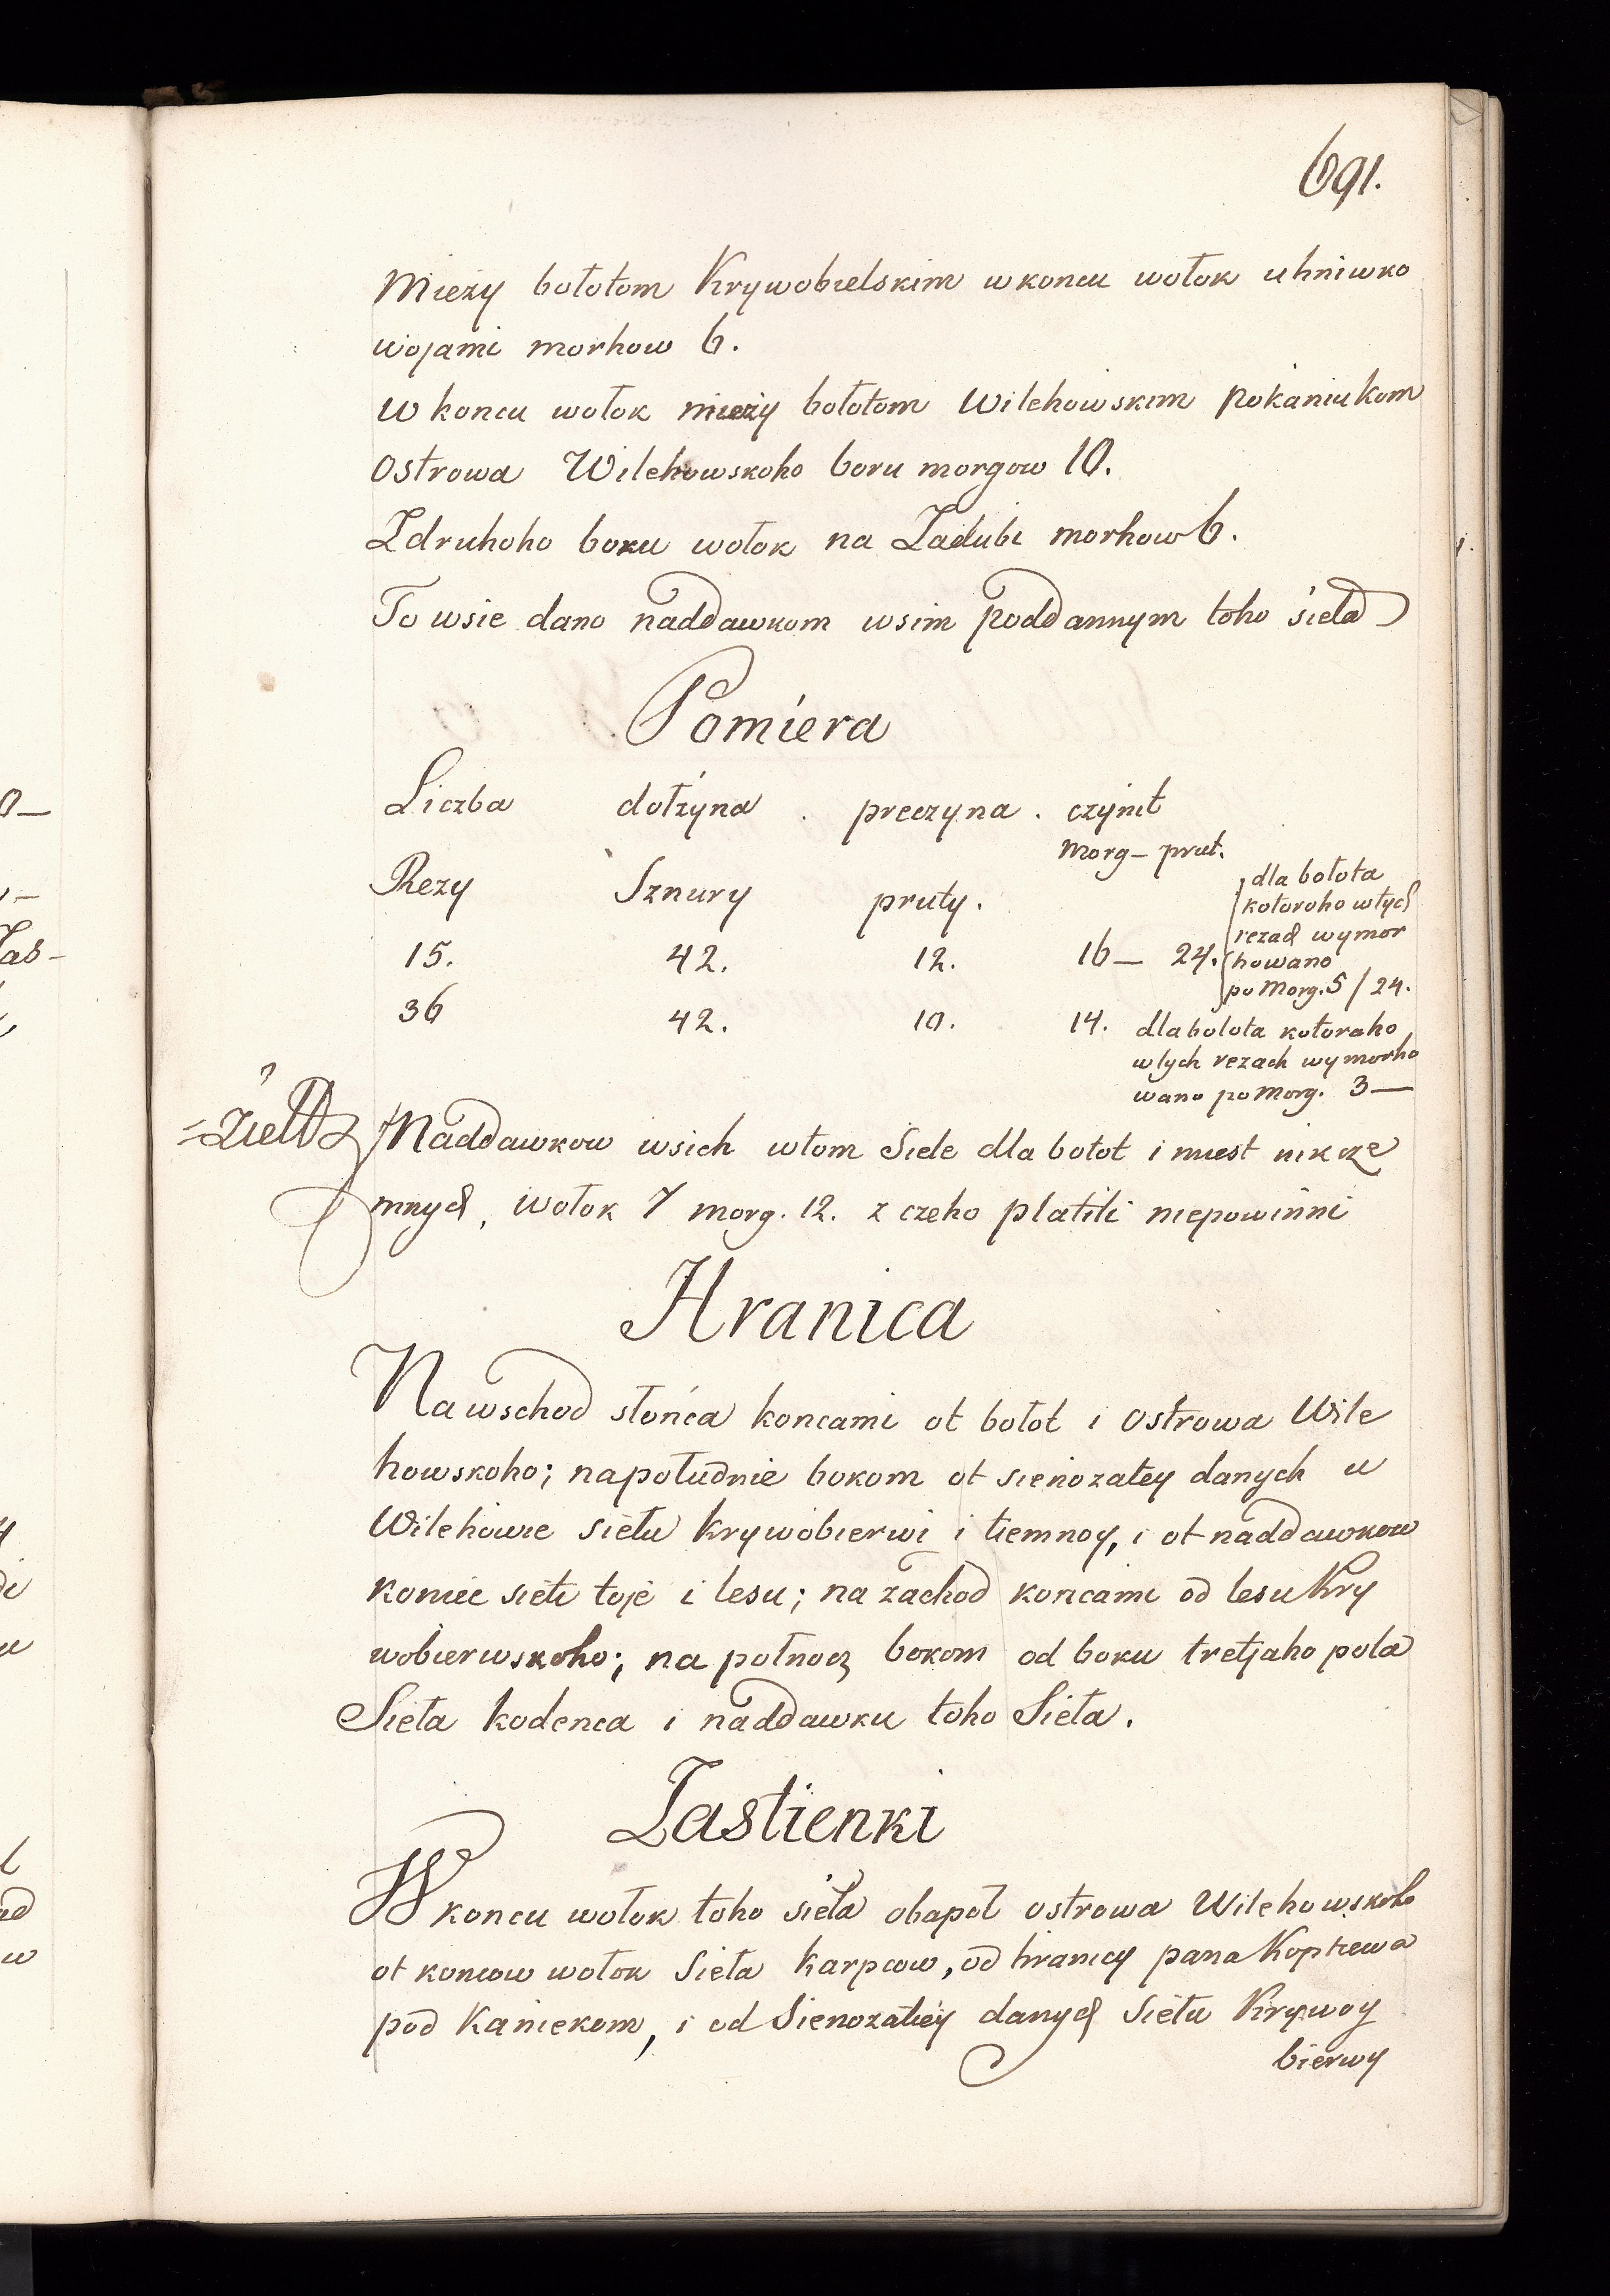 691.
Mieży bołotom Krywobielskim w koncu wołok uhniwko
wojami morhow 6.
W koncu wołok mieży bołotom Wilehowskim pokaniukom
Ostrowa Wilehowskoho boru morgow 10.
Z druhoho boku wołok na Zadubi morhow 6.
To wsie dano naddawkom wsim poddannym toho sieła
Pomiera
Liczba dołżyna . preczyna . czynit
Morg – prut.
Rezy Sznury pruty.
15. 42. 12. 16 — 24.
dla bołota
kotoroho w tych
rezach wymor
howano
po Morg. 5 / 24.
36 42. 10. 14. dla bolota kotoroho
w tych rezach wymorho
wano po Morg. 3 —
Naddawkow wsich w tom Siele dla bołot i miest nikcze
mnych, wołok 7 morg. 12. z czeho platiti niepowinni
Hranica
Na wschod słońca koncami ot bołot i Ostrowa Wile
howskoho; na południe bokom ot sienożatey danych u
Wilehowie siełu Krywobierwi i tiemnoy, i ot naddawkow
koniec siełi toje i lesu; na zachod koncami od lesu Kry
wobierwskoho; na połnocz bokom od boku tretjaho pola
Sieła kodenca i naddawku toho Sieła.
Zastienki
W koncu wołok toho sieła obapoł ostrowa Wilehowskoho
ot koncow wołok Sieła Karpcow, od hranicy pana Koptiewa
pod Kaniekom, i od Sienożatiey danych Siełu Krywoy
bierwy